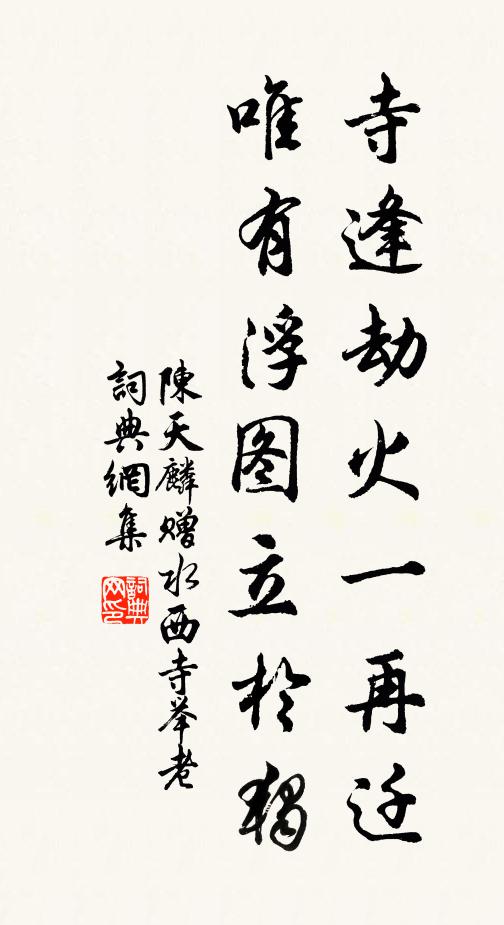 寺逢劫火一再迁
唯有浮图立於独
陳天麟赠水西寺举老
詞典網集
詞典網印